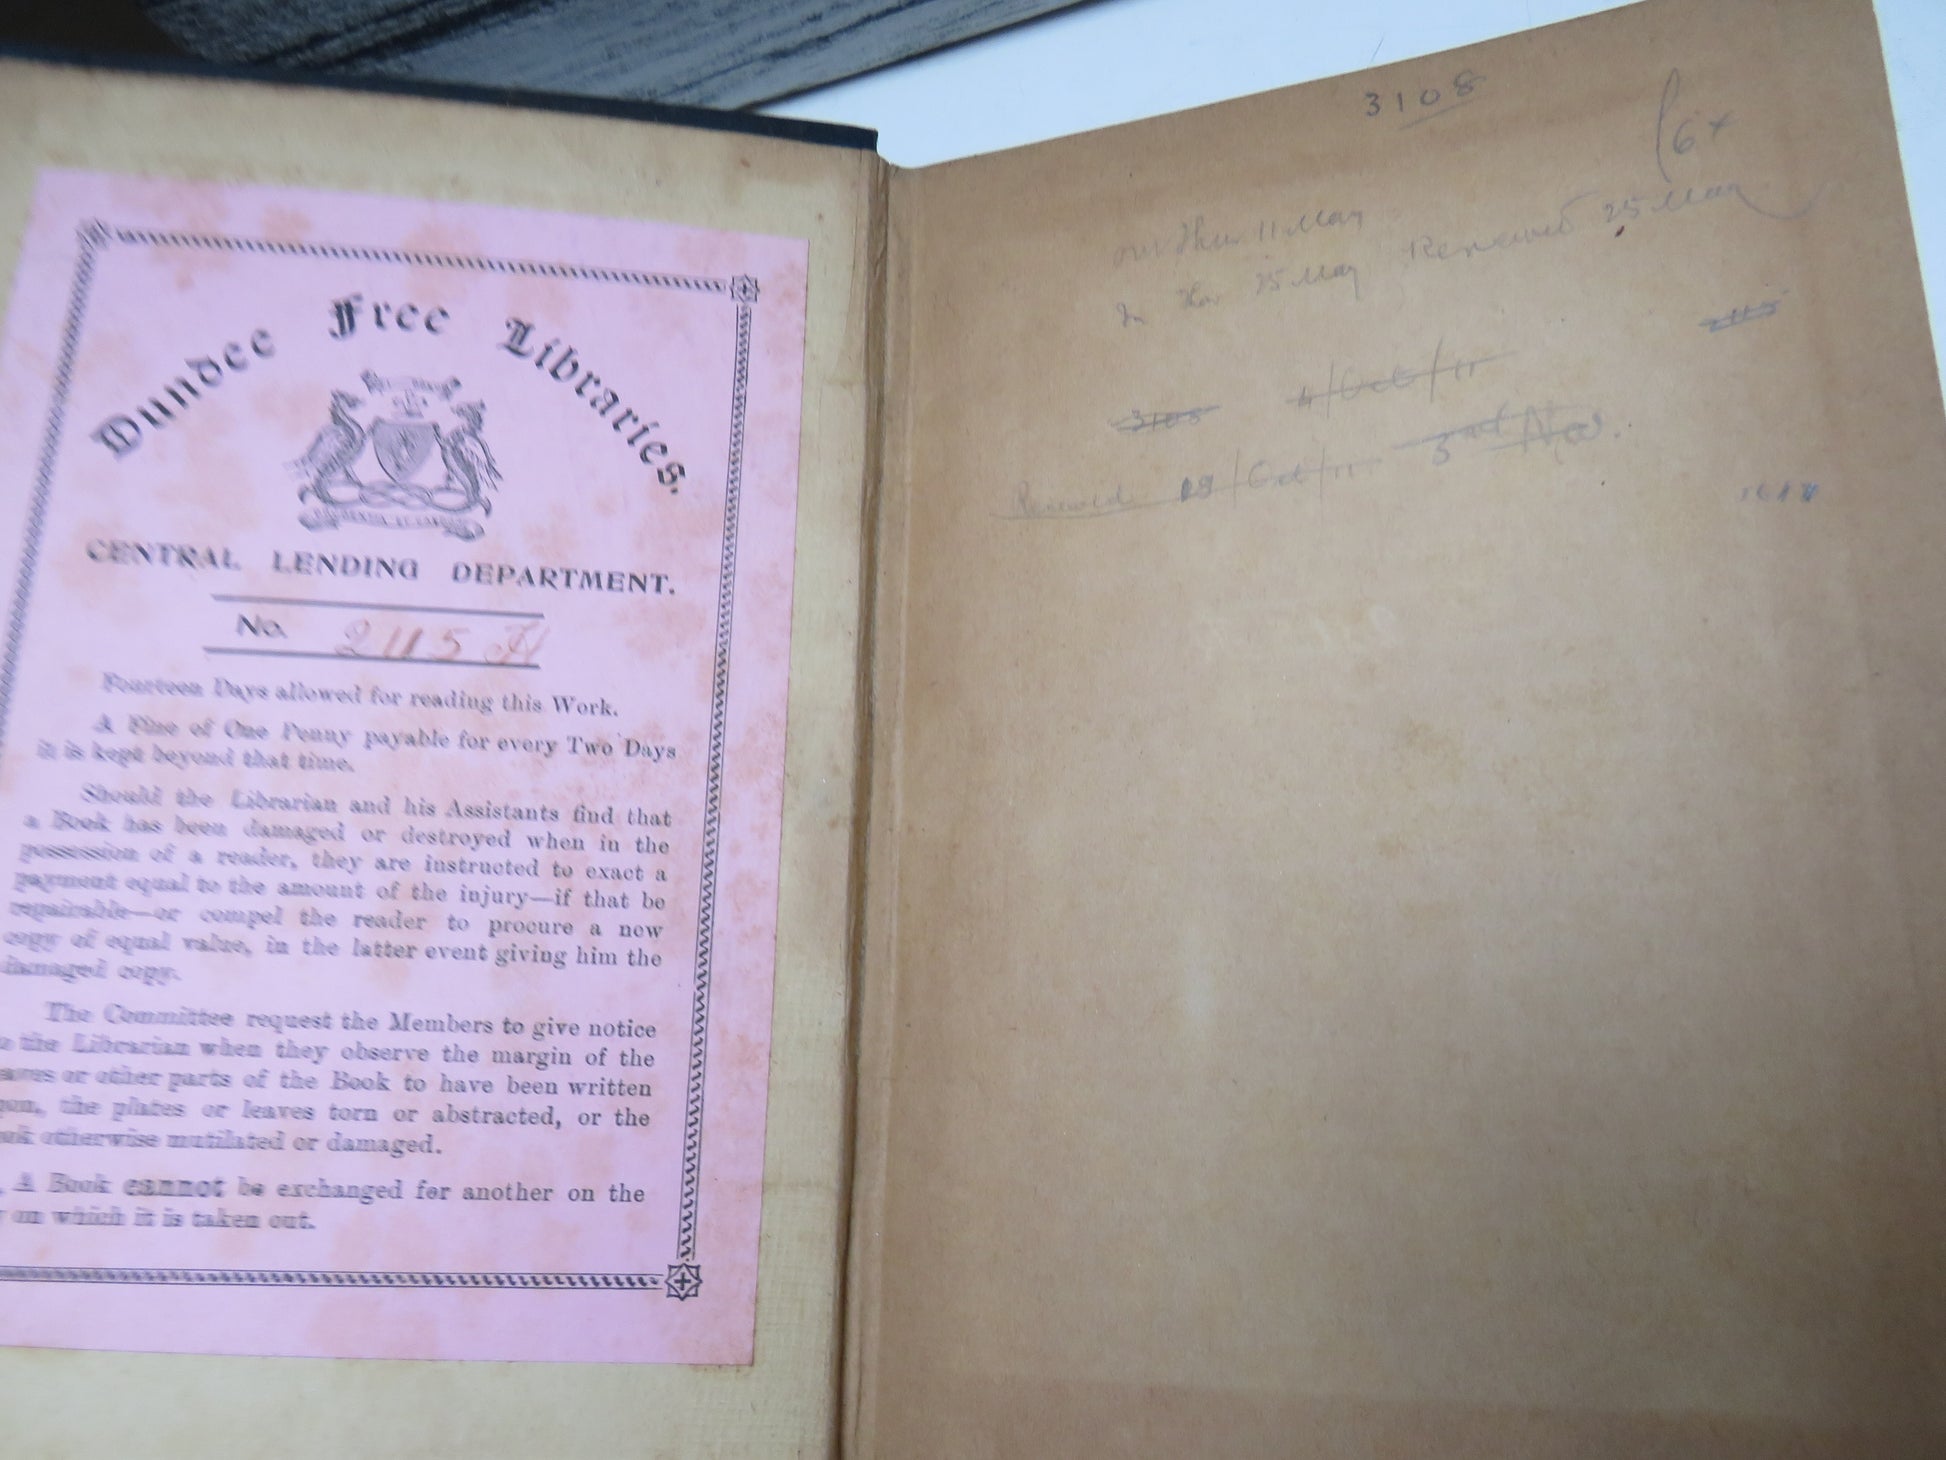 Dundee Free Libraries.
CENTRAL LENDING DEPARTMENT.
No. 2115 A
Fourteen Days allowed for reading this Work.
A Fine of One Penny payable for every Two Days
it is kept beyond that time.
Should the Librarian and his Assistants find that
a Book has been damaged or destroyed when in the
possession of a reader, they are instructed to exact a
payment equal to the amount of the injury—if that be
repairable—or compel the reader to procure a new
copy of equal value, in the latter event giving him the
damaged copy.
The Committee request the Members to give notice
the Librarian when they observe the margin of the
or other parts of the Book to have been written
the plates or leaves torn or abstracted, or the
otherwise mutilated or damaged.
A Book cannot be exchanged for another on the
on which it is taken out.
3108
6x
out Thur 11 May
In Thur 25 May Renewed 25 May
2115
3108 4/Oct/11
Renewed 19/Oct/11 3rd Nov.